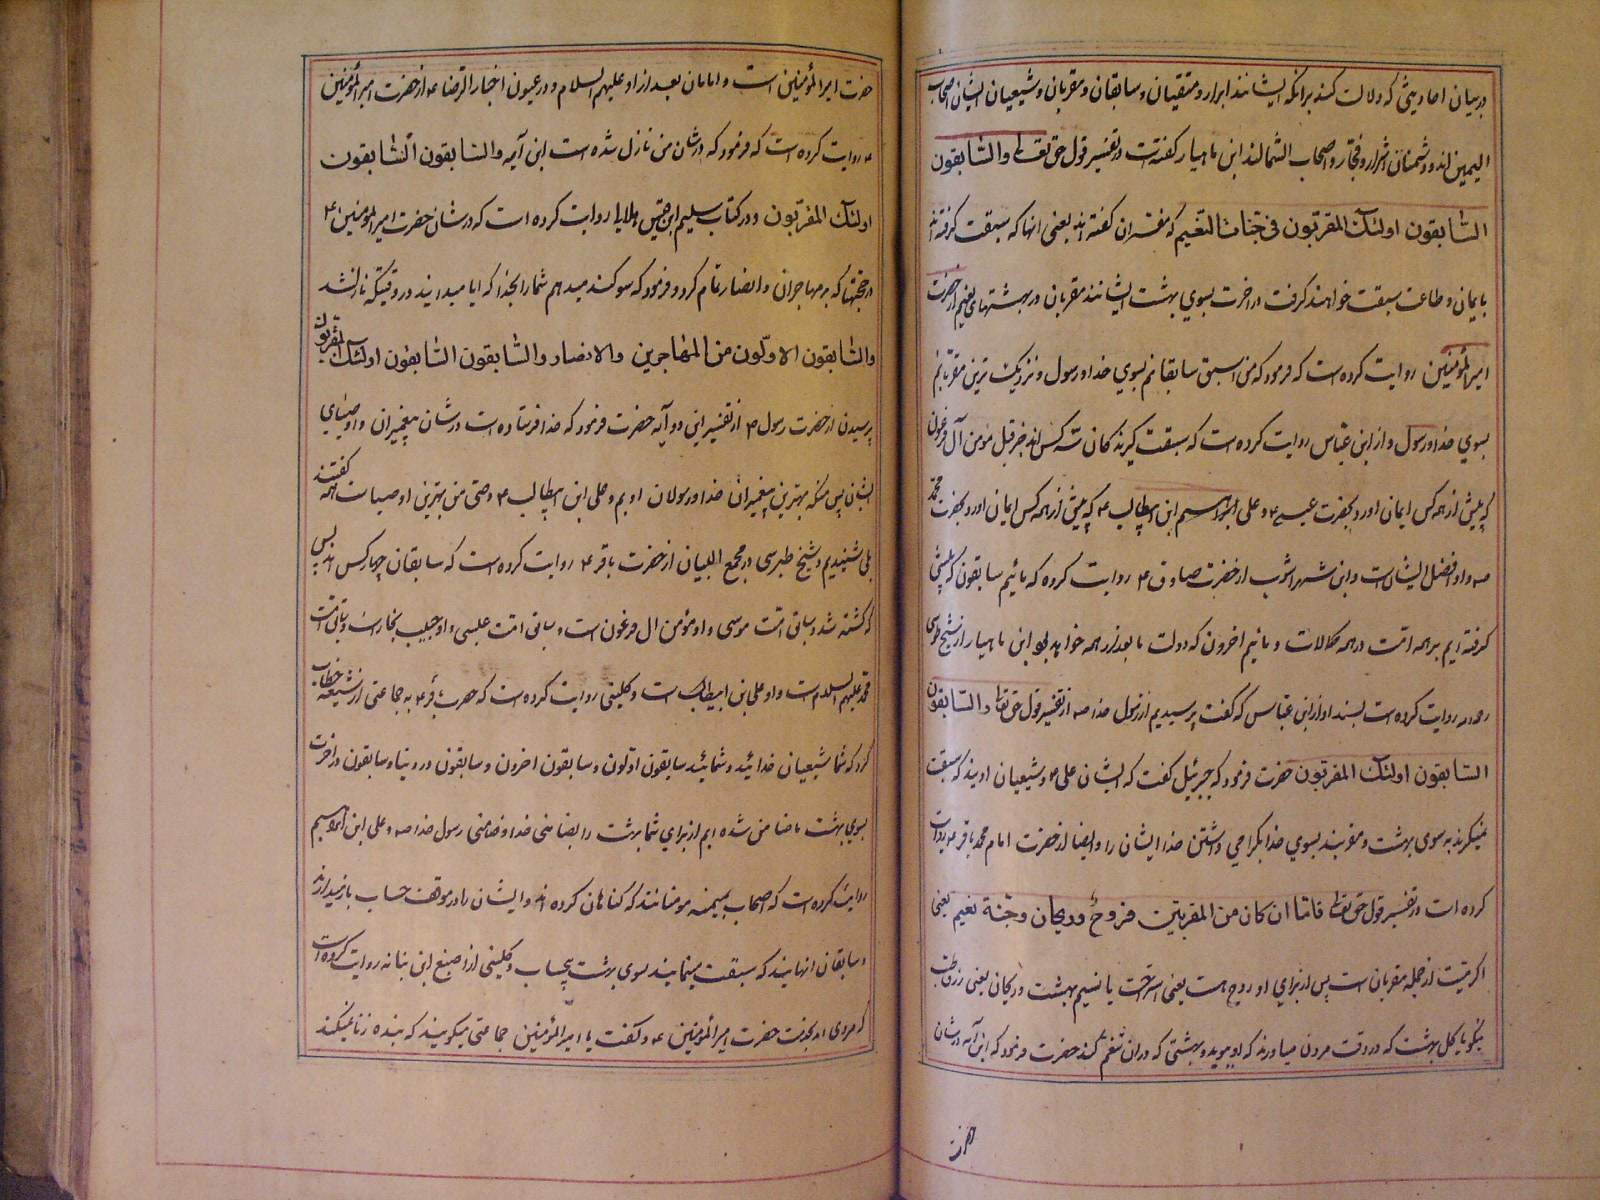 در بیان احادیثی که دلالت کند برانکه ایشانند ابرار و متقیان و سابقان و مقربان و شیعیان ایشان اصحاب
الیمین اند و دشمنان اشرار و فجار و اصحاب الشمالند ابن ماهیار کفته است در تفسیر قول حق تعالی والسّابقون
السّابقون اولئک المقرّبون فی جنّات النّعیم که مفسران کفته اند یعنی انها که سبقت کرفته اند
بایمان و طاعت سبقت خواهند کرفت در اخرت بسوی بهشت ایشانند مقربان در بهشتهای نعیم از حضرت
امیرالمؤمنین روایت کرده است که فرمود که من اسبق سابقانم بسوی خدا و رسول و نزدیک ترین مقربانم
بسوی خدا و رسول و از ابن عبّاس روایت کرده است که سبقت کیرندکان سه کس اند حزقیل مؤمن آل فرعون
که پیش از همه کس ایمان اورد بحضرت عیسی و علی ابن ابیطالب ع که پیش از همه کس ایمان اورد بحضرت محمّد
ص و او افضل ایشان است و ابن شهراشوب از حضرت صادق ع روایت کرده که مائیم سابقون که پیشی
کرفته ایم بر همه امّت در همه کمالات و مائیم اخرون که دولت ما بعد از همه خواهد بود ابن ماهیار از شیخ طوسی
روایت کرده است بسند او از ابن عباس که کفت پرسیدیم از رسول خدا ص از تفسیر قول حق تعالی والسّابقون
السّابقون اولئک المقرّبون حضرت فرمود که جبرئیل کفت که ایشان علی ع و شیعیان اویند که سبقت
میکیرند به سوی بهشت و مقربند بسوی خدا بکرامی داشتن خدا ایشان را و ایضا از حضرت امام محمّد باقر ع روایت
کرده است در تفسیر قول حق تعالی فامّا ان کان من المقربین فروحٌ وریحان وجنّة نعیم یعنی
اکر میّت از جمله مقربان است پس از برای او روح هست یعنی استراحت یا نسیم بهشت و ریحان یعنی رزق طیب
نیکو یا کل بهشت که در وقت مردن میاورند که او ببوید و بهشتی که در ان تنعّم کند حضرت فرمود که این آیه در شان
حضرت
حضرت امیرالمؤمنین است و امامان بعد از او علیهم السلام و در عیون اخبار الرّضا ع از حضرت امیرالمؤمنین
ع روایت کرده است که فرمود که در شان من نازل شده است این آیه والسّابقون السّابقون
اولئک المقرّبون و در کتاب سلیم ابن قیس هلالی روایت کرده است که در شان حضرت امیرالمؤمنین ع
در حجّتها که بر مهاجران و انصار تمام کرد و فرمود که سوکند میدهم شما را بخدا که ایا میدانید در وقتیکه نازل شد
والسّابقون الاوّلون من المهاجرین والانصار والسّابقون السّابقون اولئک المقرّبون
پرسیدن از حضرت رسول ص از تفسیر این دو آیه حضرت فرمود که خدا فرستاده است در شان پیغمبران و اوصیای
ایشان پس منکه بهترین پیغمبران خدا و رسولان اویم و علی ابن ابیطالب ع وصی من بهترین اوصیاست همه کفتند
بلی شنیدیم و شیخ طبرسی در مجمع البیان از حضرت باقر ع روایت کرده است که سابقان چهار کس اند پس
که کشته شد و سابق امّت موسی و او مؤمن ال فرعون است و سابق امّت عیسی و او حبیب نجار است و سابق امّت
محمّد علیهم السلام است و او علی بن ابیطالب است و کلینی روایت کرده است که حضرت باقر ع به جماعتی از شیعه خطاب
کرد که شما شیعیان خدائید و شمائید سابقون اوّلون و سابقون اخرون و سابقون در دنیا و سابقون در اخرت
بسوی بهشت ما ضامن شده ایم از برای شما بهشت را بضامنی خدا و ضامنی رسول خدا ص و علی ابن ابراهیم
روایت کرده است که اصحاب میمنه مومنانند که کناهان کرده اند و ایشان را در موقف حساب باز میدارند
و سابقان انهایند که سبقت مینمایند بسوی بهشت بیحساب و کلینی از اصبغ ابن نباته روایت کرده است
که مردی امد بخدمت حضرت امیرالمؤمنین ع و کفت یا امیرالمؤمنین جماعتی میکویند که بنده زنا نمیکند